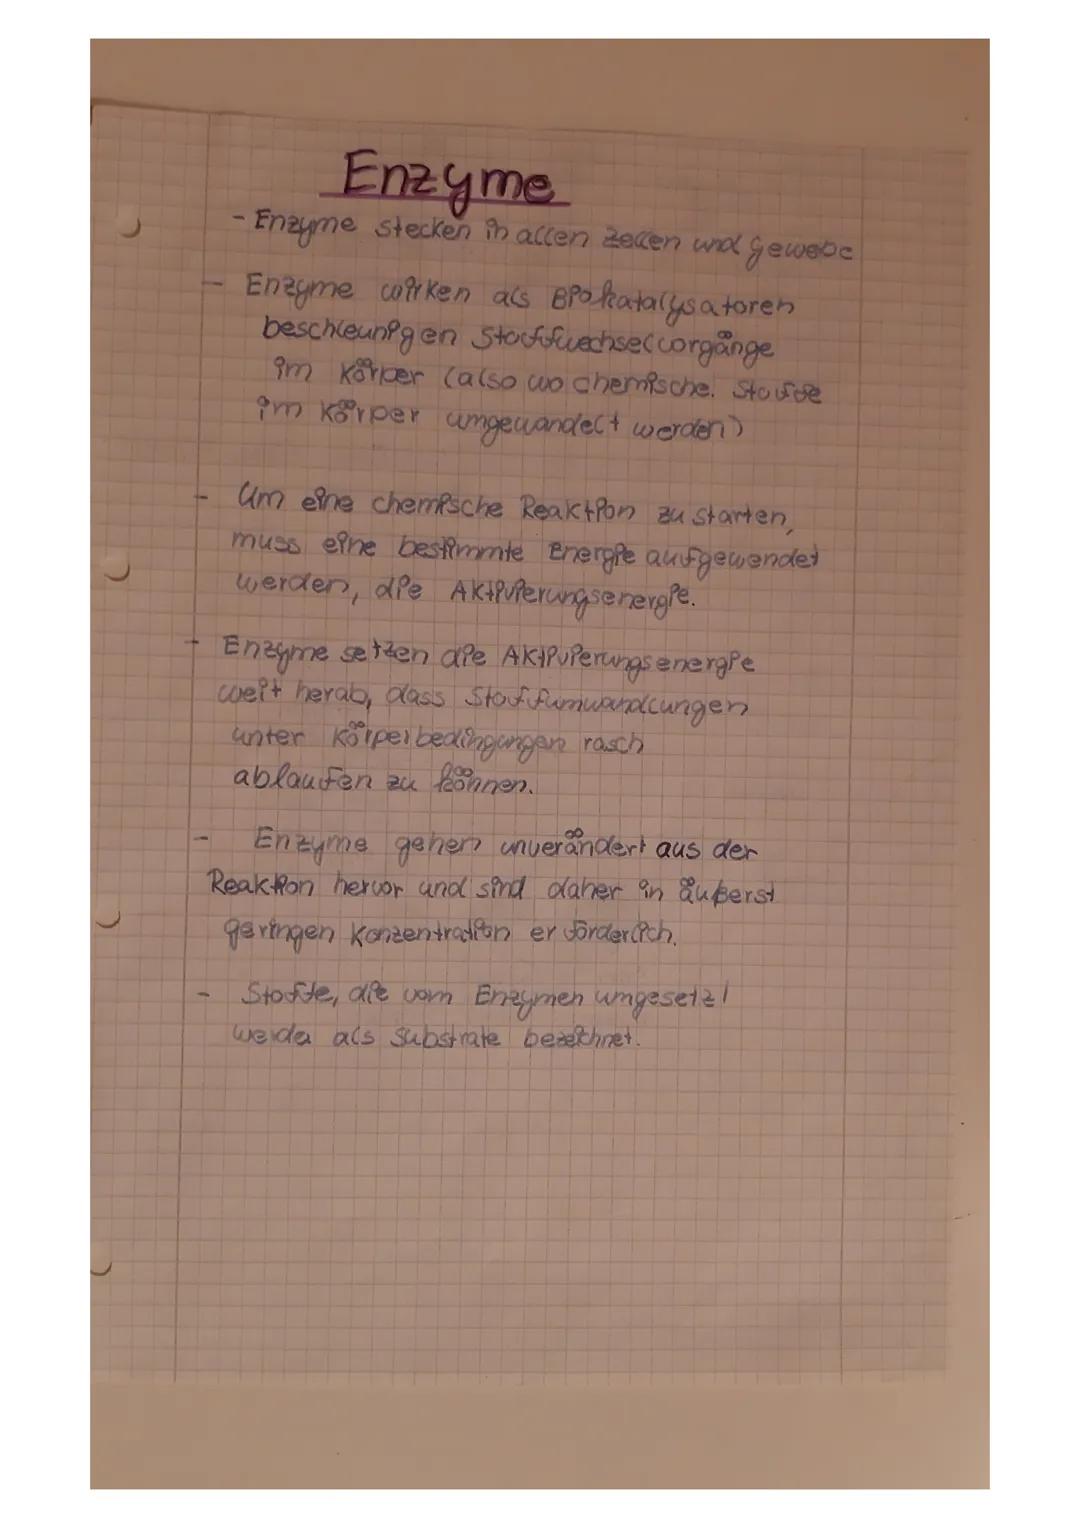 Enzyme
- Enzyme stecken in allen Zellen und Gewebe
- Enzyme wirken als Biokatalysatoren
beschleunigen Stoffwechselvorgänge
im Körper (also wo chemische. Stoffe
im Körper umgewandelt werden)
- Um eine chemische Reaktion zu starten,
muss eine bestimmte Energie aufgewendet
werden, die Aktivierungsenergie.
- Enzyme setzen die Aktivierungsenergie
weit herab, dass Stoffumwandlungen
unter Körperbedingungen rasch
ablaufen zu können.
- Enzyme gehen unverändert aus der
Reaktion hervor und sind daher in äußerst
geringen Konzentration erforderlich.
- Stoffe, die vom Enzymen umgesetzt
werde als Substrate bezeichnet.